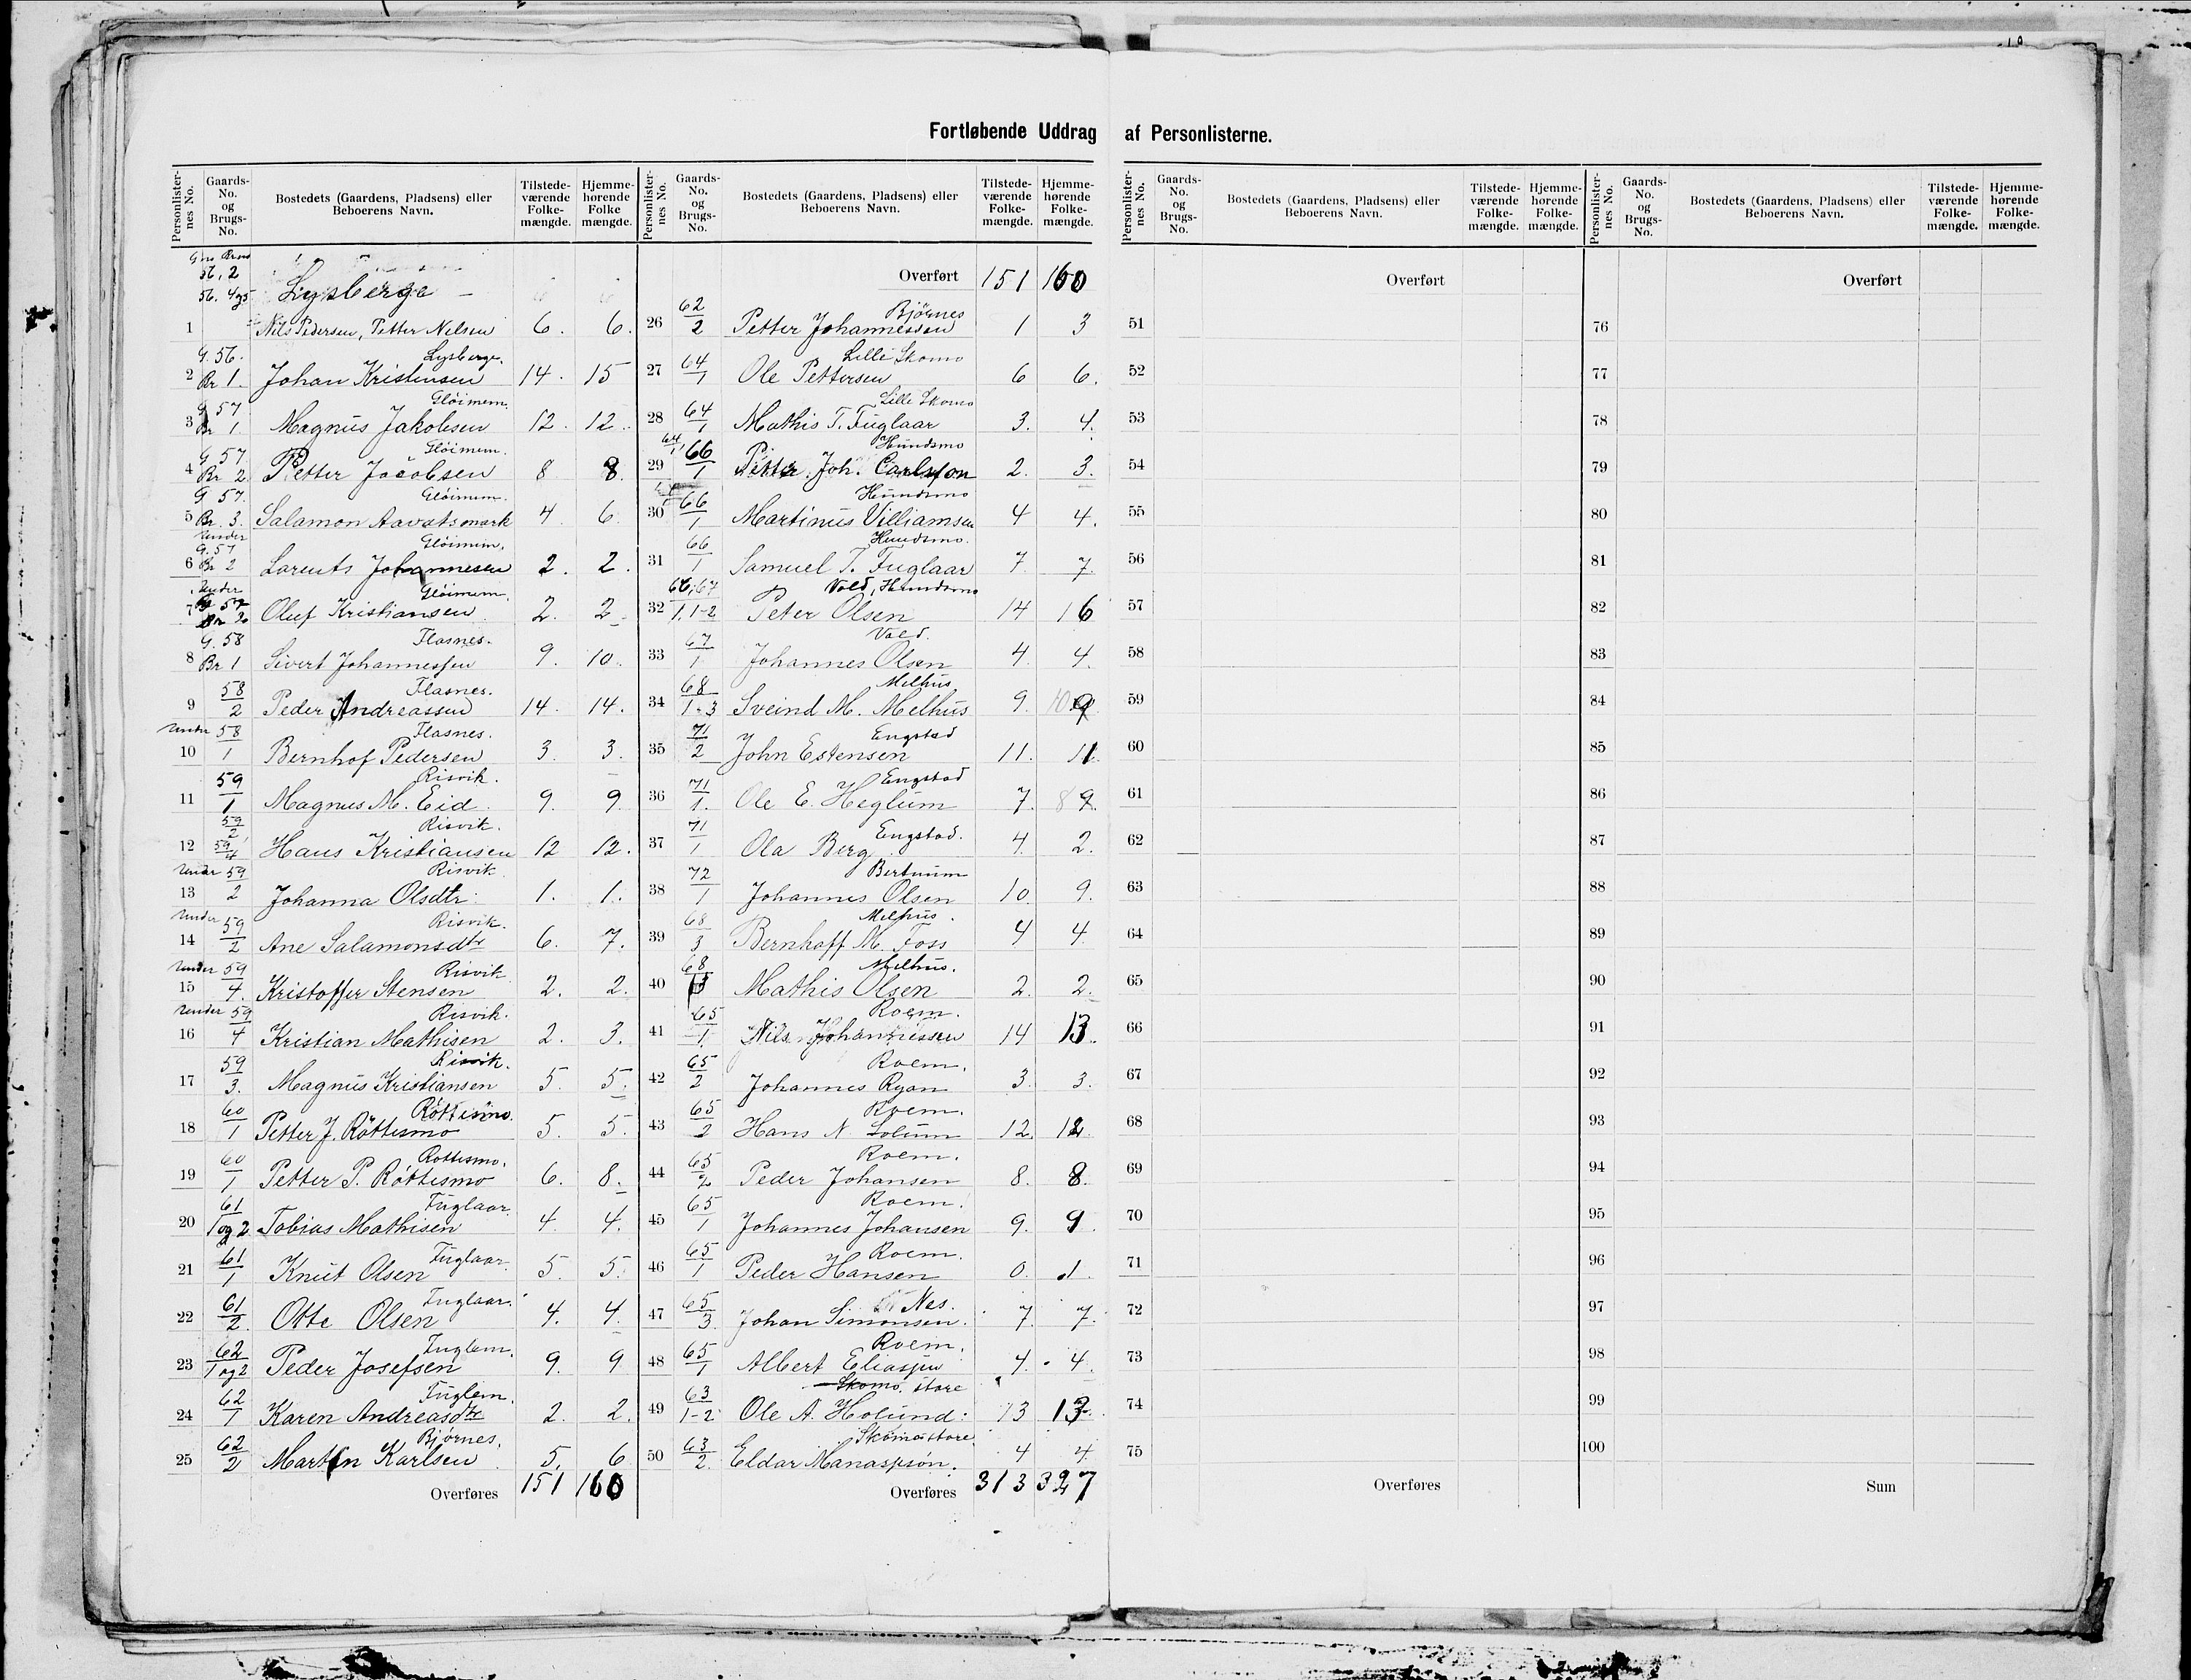 Fortløbende Uddrag af Personlisterne.
Personlister-nes No. Gaards-No. og Brugs-No. Bostedets (Gaardens, Pladsens) eller Beboerens Navn. Tilstede-værende Folke-mængde. Hjemme-hørende Folke mængde.
56, 2
56. 4og5 Lysberge
1 Nils Pedersen, Petter Nelsen 6. 6.
G. 56. Lysberge.
2 Br 1. Johan Kristensen 14. 15
G 57 Glöimem.
3 Br 1. Magnus Jakobsen 12. 12.
G 57 Glöimem.
4 Br 2 Petter Jacobsen 8 8.
G 57. Glöimem.
5 Br. 3. Salamon Aavatsmark 4. 6.
Under
G. 57 Glöimem.
6 Br 2 Larents Johannesen 2. 2.
Under Glöimem.
7 G 57 Br 2 Oluf Kristiansen 2. 2.
G. 58 Flasnes.
8 Br 1 Sivert Johannessen 9. 10.
58 Flasnes.
9 2 Peder Andreassen 14. 14.
Under 58 Flasnes.
10 1 Bernhof Pedersen 3. 3.
59 Risvik.
11 1 Magnus M. Eid. 9. 9
59/2 Risvik.
12 59/4 Hans Kristiansen 12 12.
Under 59 Risvik
13 2 Johanna Olsdtr. 1. 1.
Under 59 Risvik.
14 2 Ane Salamonsdtr 6. 7.
Under 59 Risvik
15 4. Kristoffer Stensen 2. 2.
Under 59 Risvik.
16 4 Kristian Mathisen 2. 3.
59 Risvik.
17 3. Magnus Kristiansen 5. 5.
60 Röttesmo.
18 1 Petter J. Röttesmo 5. 5.
60 Rottesmo.
19 1 Petter P. Röttesmo 6. 8.
61 Fuglaar.
20 1 og 2 Tobias Mathisen 4. 4.
61 Fuglaar.
21 1 Knut Olsen 5. 5.
61 Fuglaar.
22 2 Otte Olsen 4. 4.
62 Fuglem.
23 1 og 2 Peder Josefsen 9. 9
62 Fuglem.
24 1 Karen Andreasdtr 2. 2.
62 Bjørnes.
25 2 Martin Karlsen 5. 6
Overføres 151 160
Personlister-nes No. Gaards-No. og Brugs-No. Bostedets (Gaardens, Pladsens) eller Beboerens Navn. Tilstede-værende Folke-mængde. Hjemme-hørende Folke-mængde.
Overført 151 160
62 Bjørnes
26 2 Petter Johannessen 1 3
64 Lille Skomo
27 1 Ole Pettersen 6 6.
64 Lille Skomo
28 1 Mathis T. Fuglaar 3. 4.
64/1 66 Hundsmo
29 1 Petter Joh. Carlsson 2. 3.
66 Hundsmo
30 1 Martinus Villiamsen 4 4.
66 Hundsmo.
31 1 Samuel T. Fuglaar 7 7.
66, 67 Vold, Hundsmo
32 1, 1-2 Peter Olsen 14 16
67 Vold.
33 1 Johannes Olsen 4. 4.
68 Melhus
34 1-3 Sveind M. Melhus 9. 9
71 Engstad
35 2 John Estensen 11. 11.
71 Engstad
36 1. Ole E. Heglum 7. 9.
71 Engstad.
37 1 Ola Berg 4. 2.
72 Bertnum
38 1 Johannes Olsen 10. 9.
68 Melhus.
39 3 Bernhoff M. Foss 4 4.
68 Melhus.
40 Mathis Olsen 2. 2.
65 Roem.
41 1. Nils Johannessen 14 13.
65 Roem.
42 2 Johannes Ryan 3. 3.
65 Roem.
43 2 Hans N. Solum 12. 12.
65 Roem.
44 2 Peder Johansen 8. 8.
65 Roem.
45 1 Johannes Johansen 9. 9.
65 Roem.
46 1 Peder Hansen 0. 1.
65 Nes.
47 3. Johan Simonsen. 7. 7.
65 Roem.
48 1 Albert Eliassen 4. 4.
63 Skomo, store
49 1-2 Ole A. Holund: 13 13.
63 Skomo store
50 2. Eldar Manassøn. 4 4.
Overføres 313 327
Personlister-nes No. Gaards-No. og Brugs-No. Bostedets (Gaardens, Pladsens) eller Beboerens Navn. Tilstede-værende Folke-mængde. Hjemme-hørende Folke-mængde.
Overført
51
52
53
54
55
56
57
58
59
60
61
62
63
64
65
66
67
68
69
70
71
72
73
74
75
Overføres
Personlister-nes No. Gaards-No. og Brugs-No. Bostedets (Gaardens, Pladsens) eller Beboerens Navn. Tilstede-værende Folke-mængde. Hjemme-hørende Folke-mængde.
Overført
76
77
78
79
80
81
82
83
84
85
86
87
88
89
90
91
92
93
94
95
96
97
98
99
100
Sum